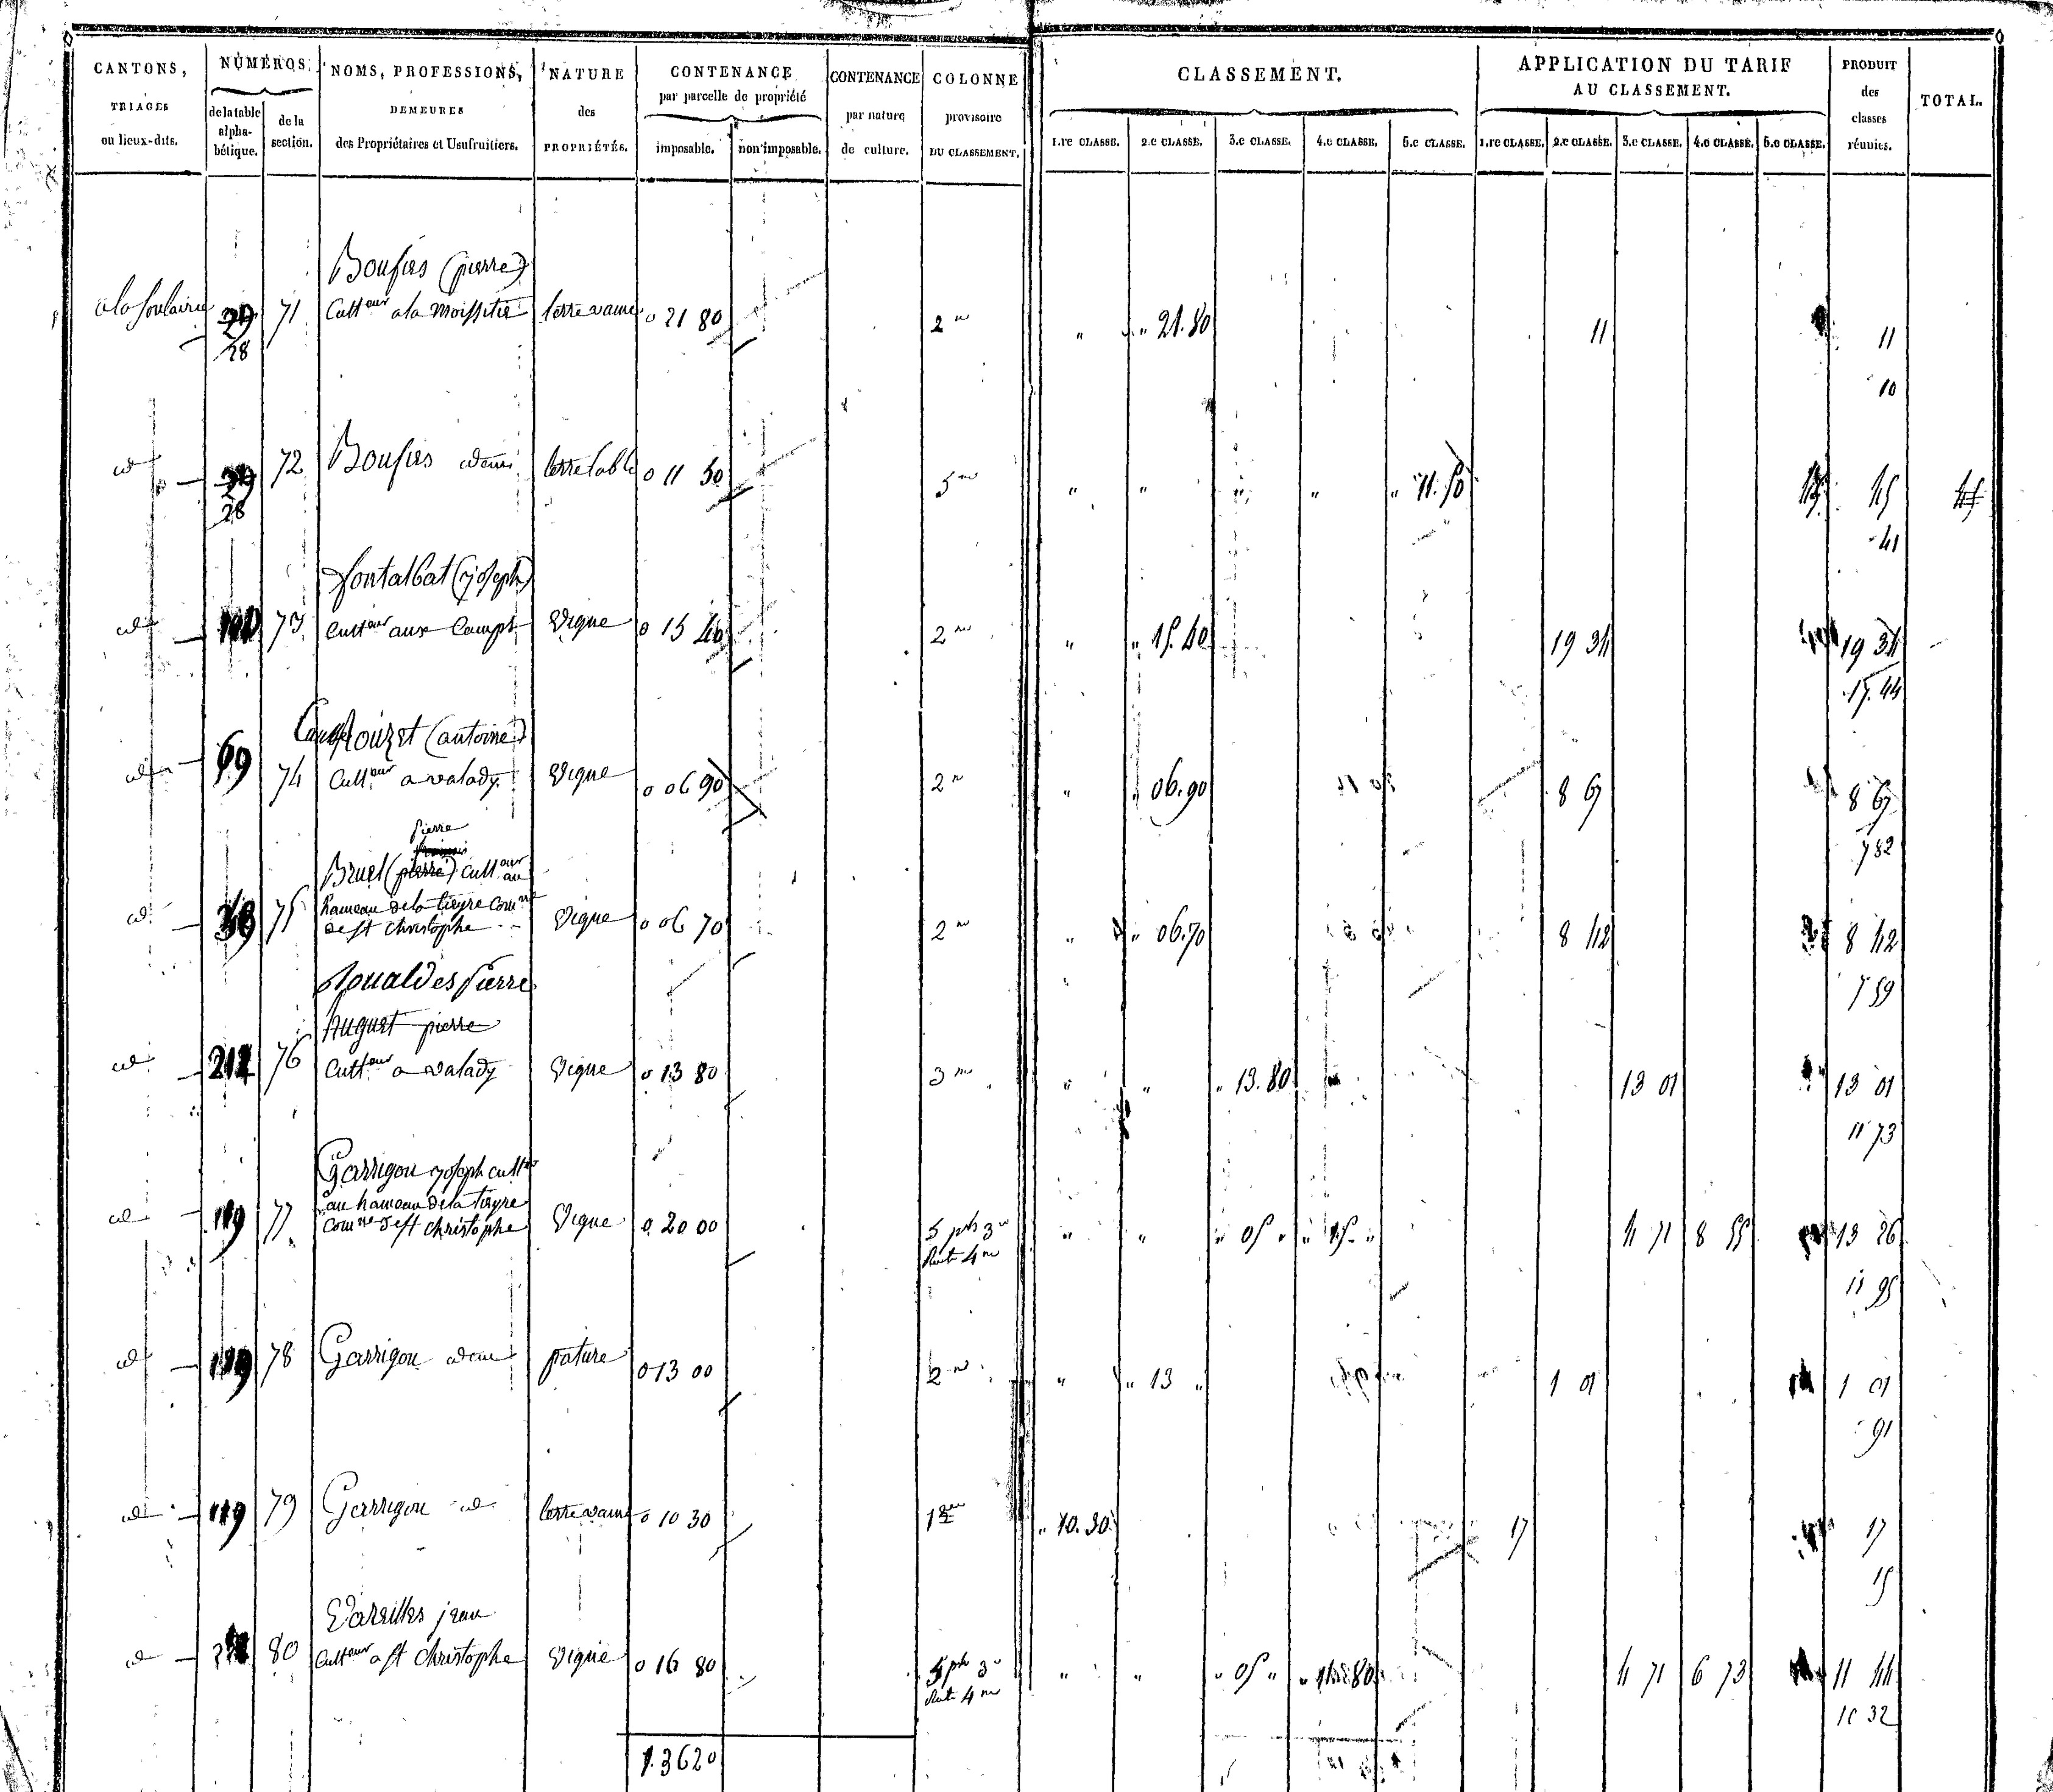 CANTONS, TRIAGES ou lieux-dits. NUMÉROS de la table alpha-bétique. de la section. NOMS, PROFESSIONS, DEMEURES des Propriétaires et Usufruitiers. NATURE des PROPRIÉTÉS. CONTENANCE par parcelle de propriété imposable. non imposable. CONTENANCE par nature de culture. COLONNE provisoire DU CLASSEMENT. CLASSEMENT. 1.re CLASSE. 2.e CLASSE. 3.e CLASSE. 4.e CLASSE. 5.e CLASSE. APPLICATION DU TARIF AU CLASSEMENT. 1.re CLASSE. 2.e CLASSE. 3.e CLASSE. 4.e CLASSE. 5.e CLASSE. PRODUIT des classes réunies. TOTAL.
Boufies (pierre)
71 Cult.eur a la terre vaine 0 21 80 2 " " 21.80 11 11
28 10
id 72 Boufies idem terre lab.le 0 11 50 5 " " " " " 11.50 45
28 41
fontalbat (joseph)
id 73 Cult.eur aux Camps Vigne 0 15 40 2 " " 15.40 19 34 19 34
17.44
rouzet (antoine)
id 69 74 Cult.eur a valady Vigne 0 06 90 2 " " 06.90 8 67 8 67
7 82
pierre
Bruel (pierre) cult.eur au
id 38 75 hameau de la tieyre com.ne de st christophe Vigne 0 06 70 2 " " 06.70 8 42 8 42
7 59
Roualdes Pierre
Auguet pierre
id 212 76 Cult.eur a valady Vigne 0 13 80 3 " " " 13.80 13 01 13 01
11 73
Garrigou joseph cult.eur
id 119 77 au hameau de la tieyre com.ne de st christophe Vigne 0 20 00 5 p.r 3 " " " 05 " " 15 " 4 71 8 55 13 26
4 11 95
id 119 78 Garrigou idem pature 0 13 00 2 " " 13 " 1 01 1 01
91
id 119 79 Garrigou id terre vaine 0 10 30 1 " 10.30 17 17
15
Vareilles jean
id 80 Cult.eur a st christophe Vigne 0 16 80 5 p.r 3 " " " 05 " " 11.80 4 71 6 73 11 44
4 10 32
1.36 20